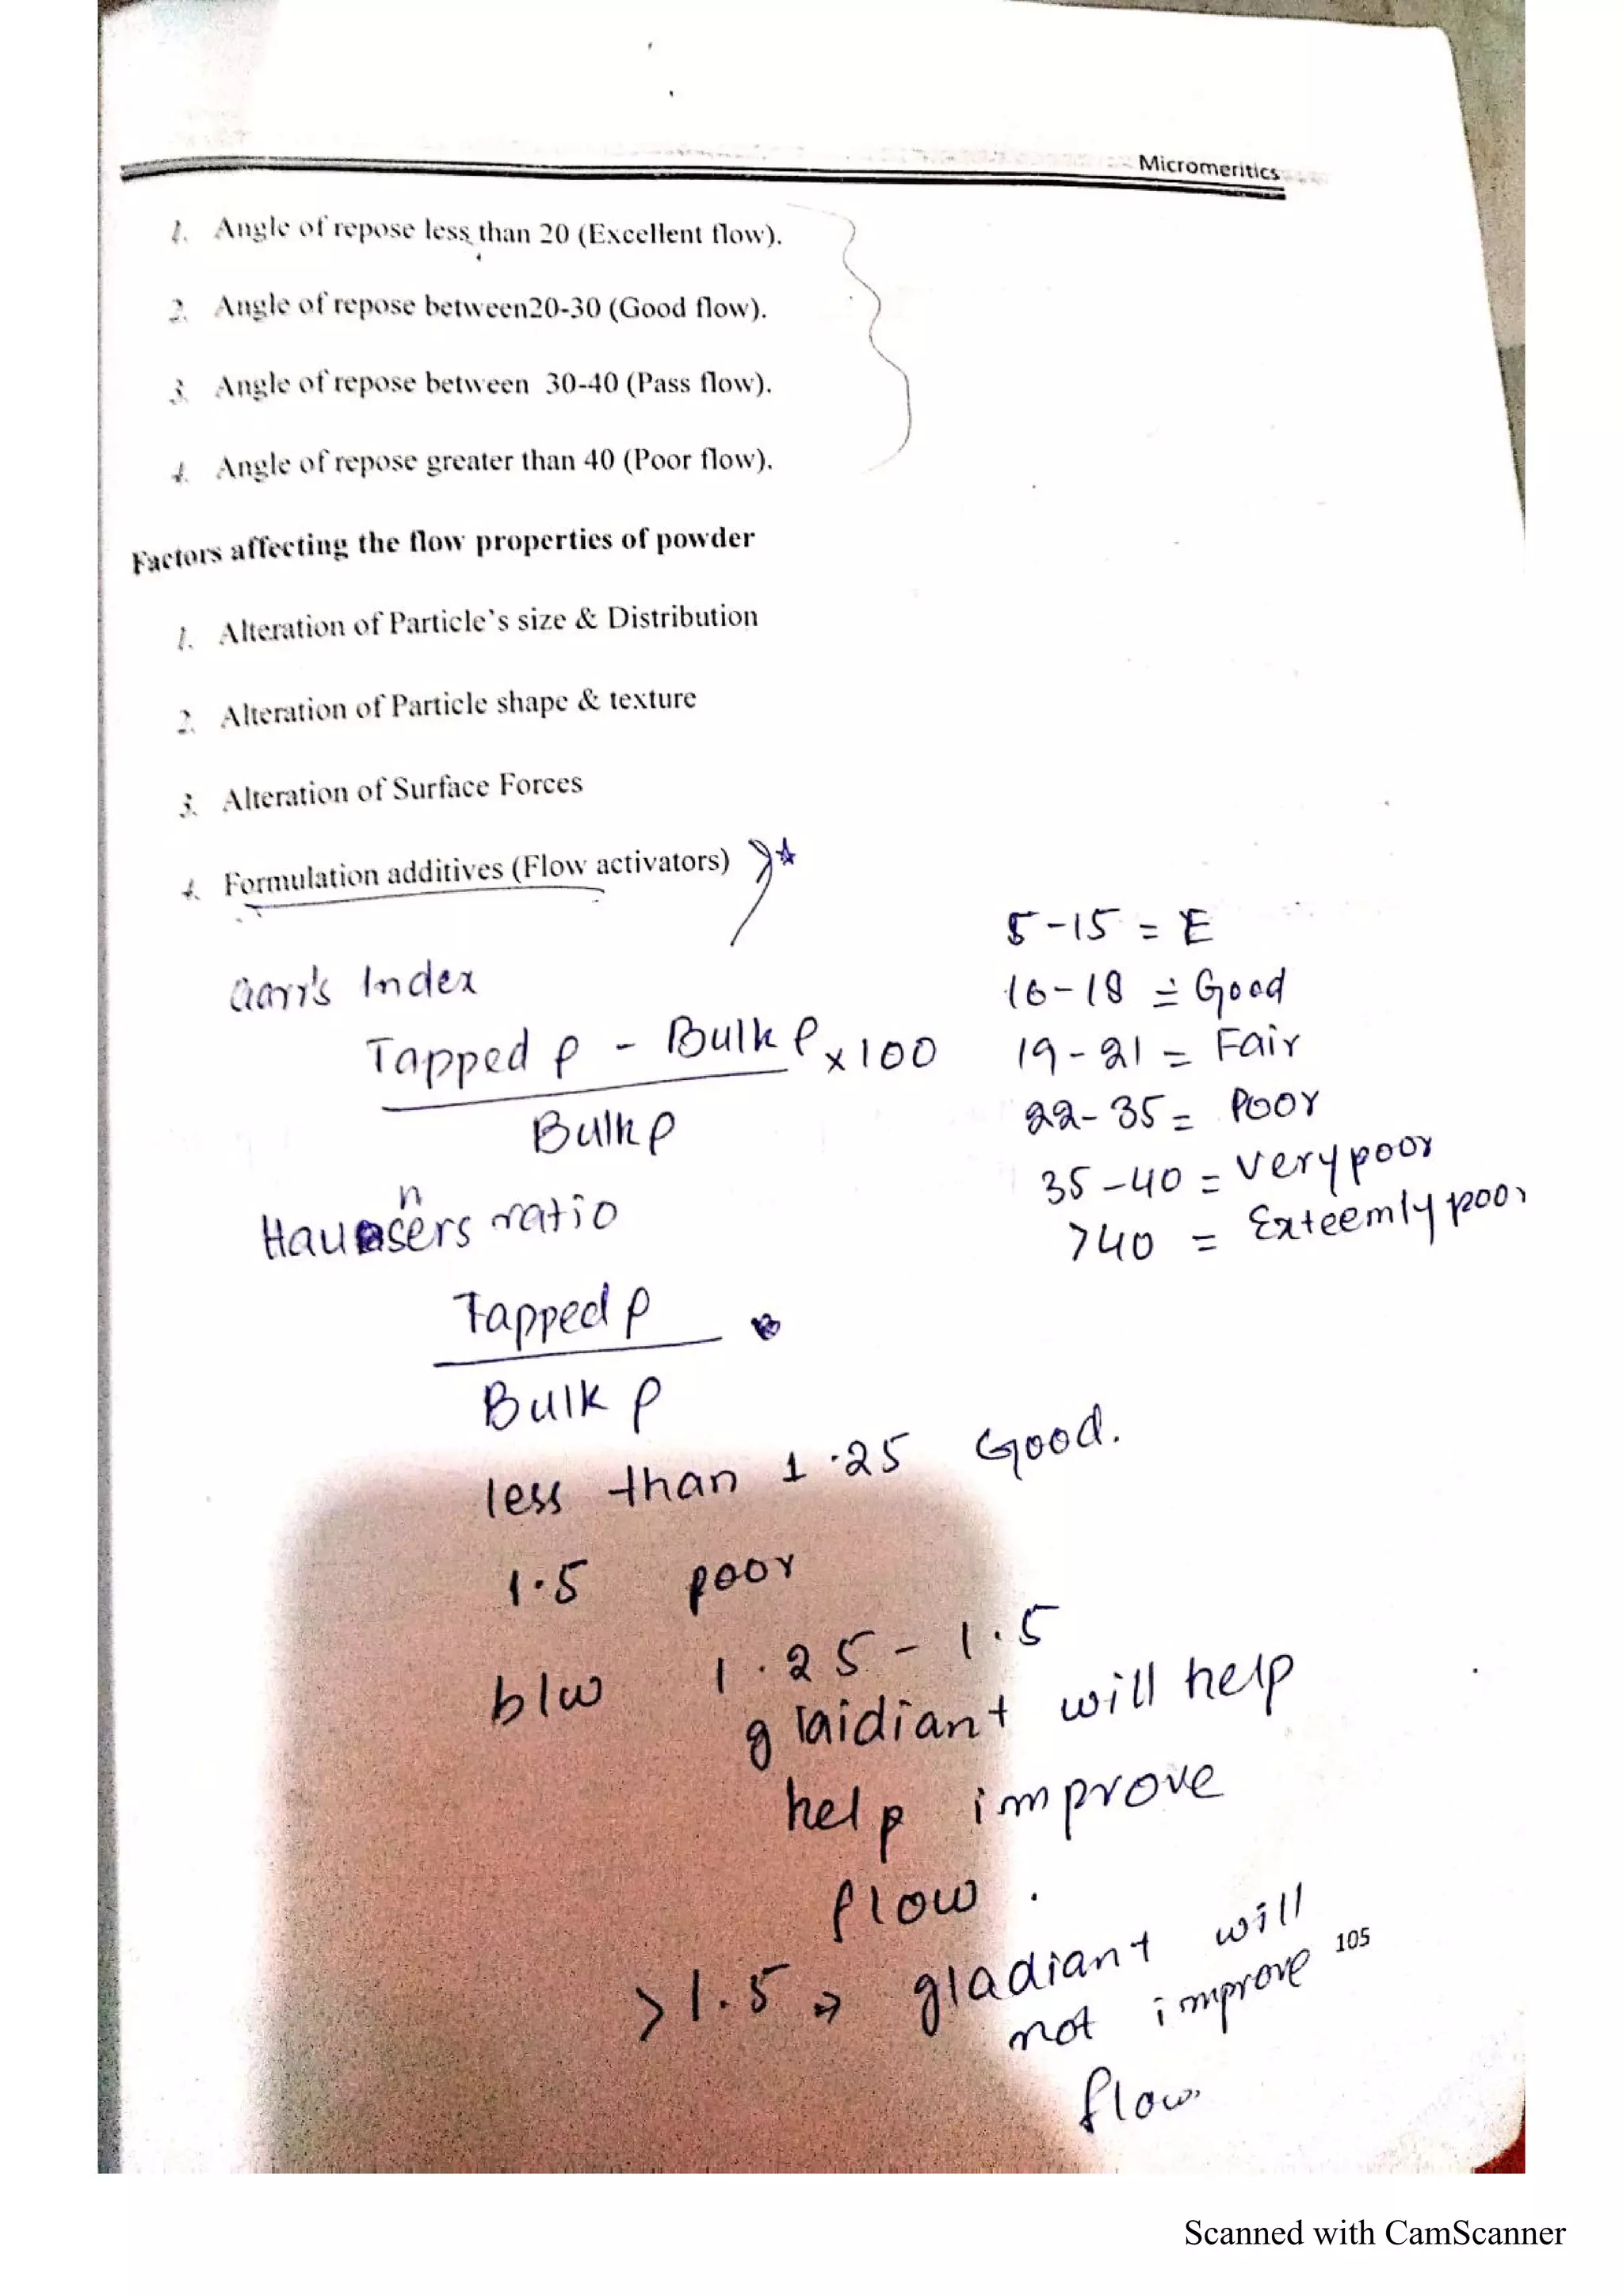 Micromeritics
1. Angle of repose less than 20 (Excellent flow).
2. Angle of repose between20-30 (Good flow).
3. Angle of repose between 30-40 (Pass flow).
4. Angle of repose greater than 40 (Poor flow).
Factors affecting the flow properties of powder
1. Alteration of Particle's size & Distribution
2. Alteration of Particle shape & texture
3. Alteration of Surface Forces
4. Formulation additives (Flow activators)
Carr's Index
Tapped ρ - Bulk ρ x 100
Bulk ρ
5-15 = E
16-18 = Good
19-21 = Fair
22-35 = Poor
35-40 = Very poor
>40 = Exteemly poor
Hausners ratio
Tapped ρ
Bulk ρ
less than 1.25 Good.
1.5 poor
b/w 1.25 - 1.5
glaidiant will help
help improve
flow.
>1.5 ⇒ gladiant will
not improve
flow.
105
Scanned with CamScanner